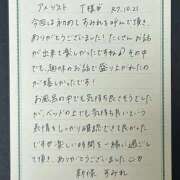 アメリスト T様へ R7.10.21
今回は初めてすみれを呼んで頂き、
ありがとうございました！たくさんお話
が出来て楽しかったですね その中
でも、趣味のお話で盛り上がれたの
が嬉しかったです！
お風呂の中でも気持ち良さそうでした
が、ベッドの上でも気持ち良いという
表情をしっかり確認できて良かった
ですが 楽しい時間を一緒に過ごし
て頂き、ありがとうございました
新人様 すみれ